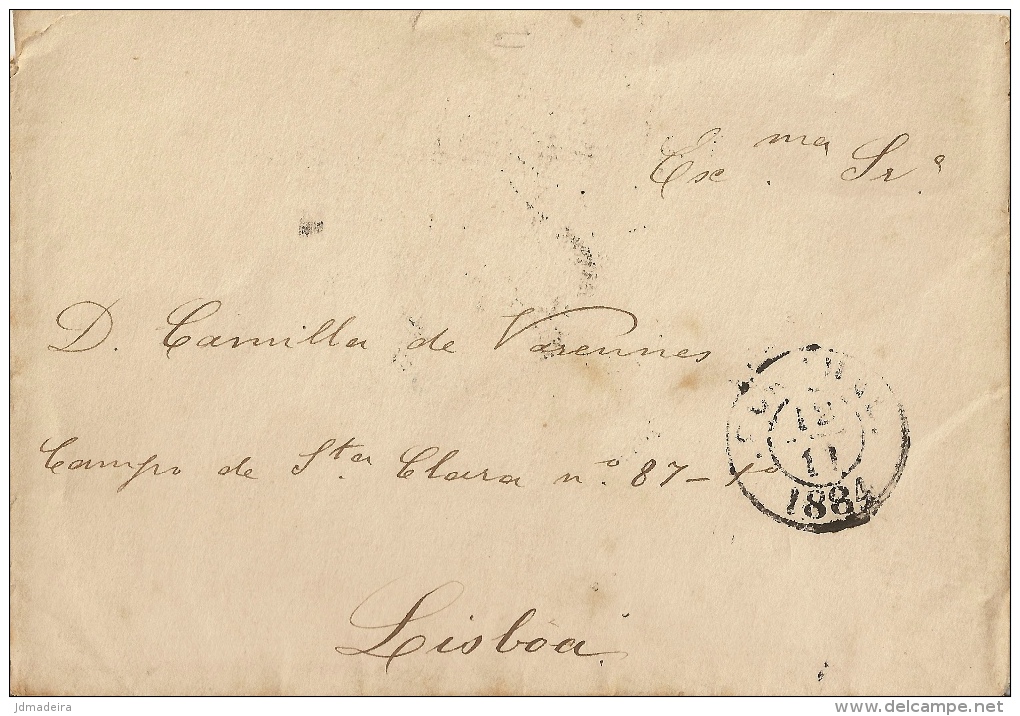 Ex.ma Sr.ª
D. Camilla de Varennes
Campo de Sta. Clara n.º 87-1º
12
11
1884
Lisbôa.
jdmadeira
www.delcampe.net